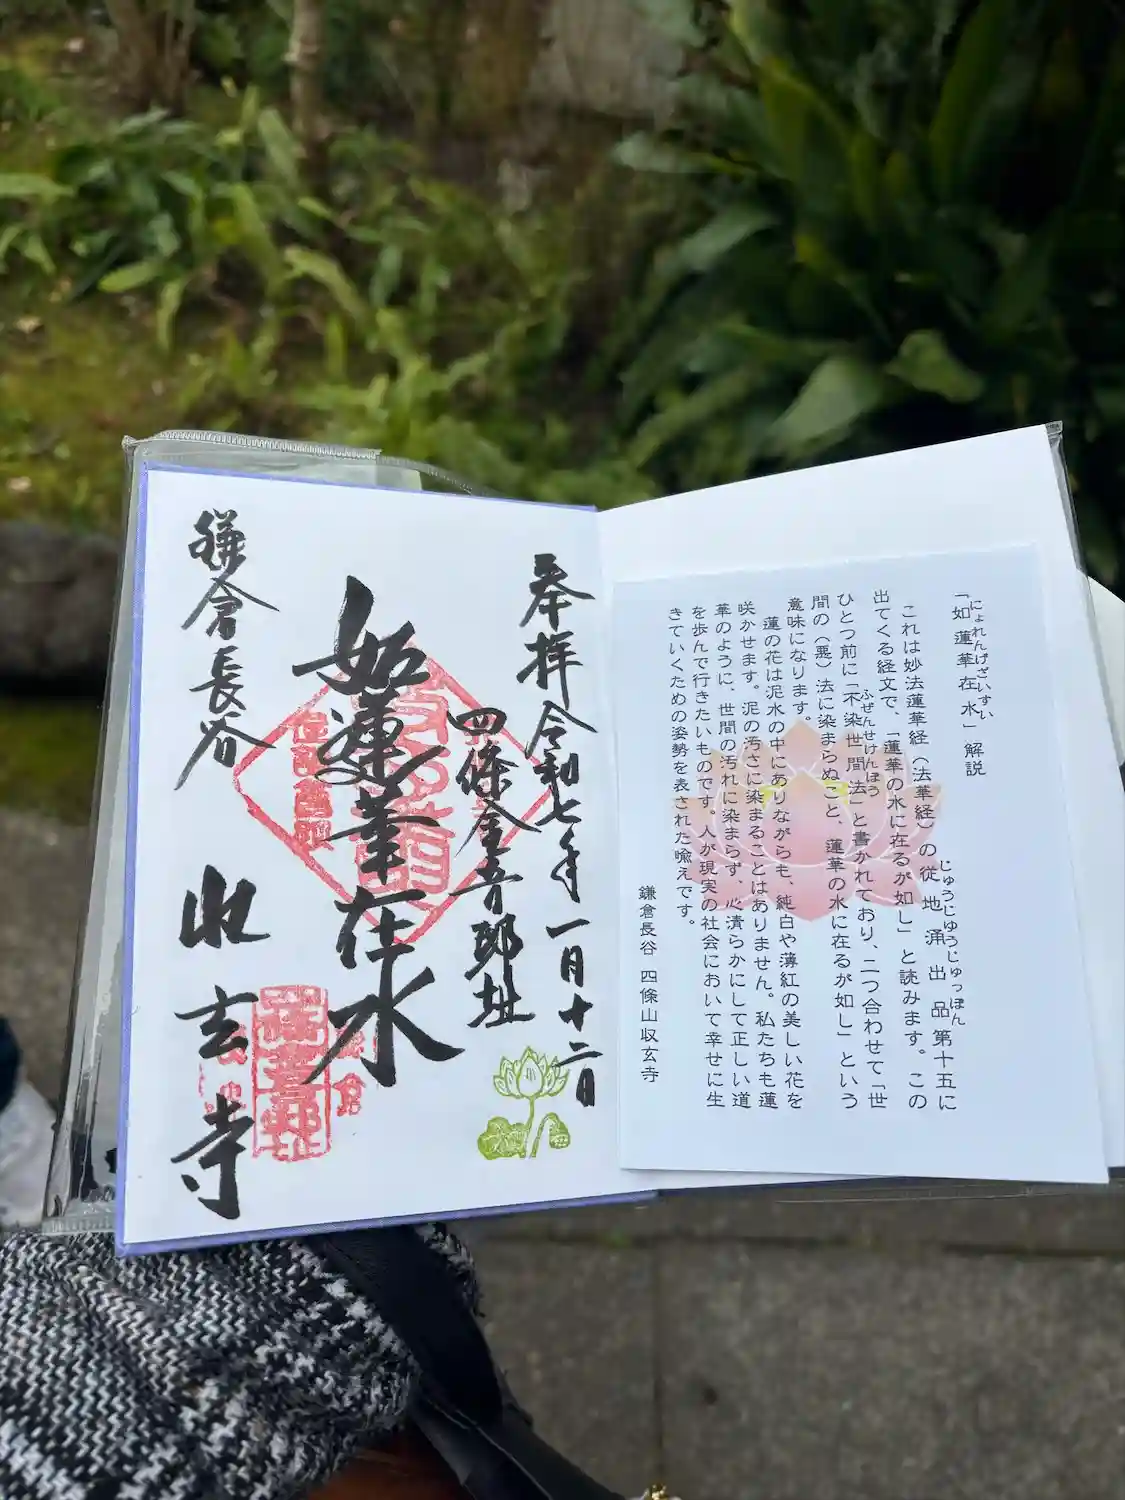 「如蓮華在水」解説
にょれんげざいすい
これは妙法蓮華経（法華経）の従地涌出品第十五に
じゅうじゅうじゅっぽん
出てくる経文で、「蓮華の水に在るが如し」と読みます。この
ひとつ前に「不染世間法」と書かれており、二つ合わせて「世
ふぜんせけんほう
間の（悪）法に染まらぬこと、蓮華の水に在るが如し」という
意味になります。
蓮の花は泥水の中にありながらも、純白や薄紅の美しい花を
咲かせます。泥の汚さに染まることはありません。私たちも蓮
華のように、世間の汚れに染まらず、心清らかにして正しい道
を歩んで行きたいものです。人が現実の社会において幸せに生
きていくための姿勢を表された喩えです。
鎌倉長谷 四條山収玄寺
奉拝 令和七年一月十二日
四條金吾邸址
如蓮華在水
鎌倉長谷
收玄寺